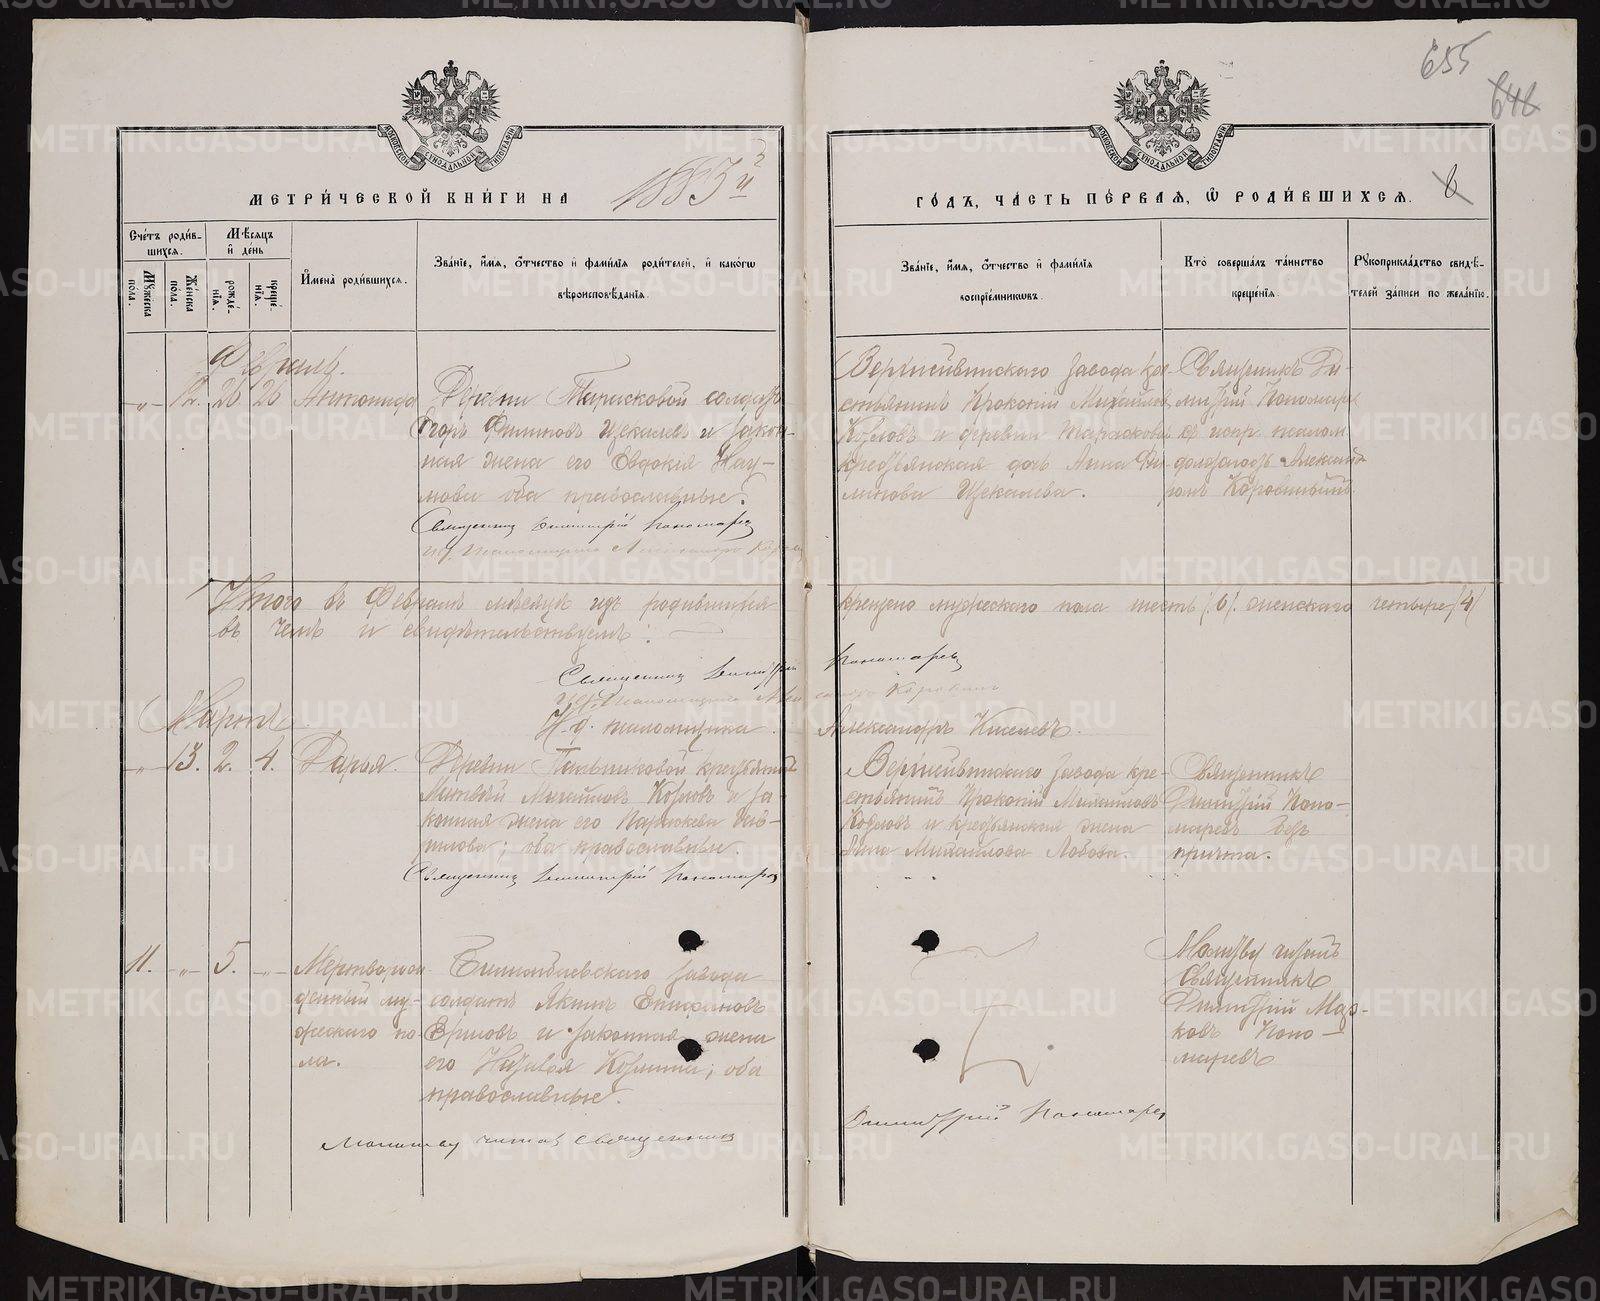 655
646
МЕТРИ́ЧЕСКОЙ КНИ́ГИ НА 1883й
ГО́ДЪ, ЧА́СТЬ ПЕ́РВАЯ, Ѡ РОДИ́ВШИХСЯ.
6
Сче́тъ роди́в-
шихся.
Мѣ́сяцъ
и де́нь
Му́жеска
по́ла.
Же́нска
по́ла.
рожде́-
нія.
креще́-
нія.
Имена̀ роди́вшихся.
Зва́ніе, и́мя, о́тчество и фами́лія роди́телей, и како́гѡ
вѣроисповѣ́данія.
Зва́ніе, и́мя, о́тчество и фами́лія
воспріе́мниковъ.
Кто̀ соверша́лъ та́инство
креще́нія.
Рꙋкоприкла́дство свидѣ́-
телей за́писи по жела́нію.
Февраль.
-"- 12. 26 26 Антонида
Деревни Тарасковой солдатъ
Егоръ Филиповъ Щекалевъ и закон-
ная жена его Евдокія Нау-
мова оба православные.
Священникъ Димитрій Пономаревъ
Верхнейвинскаго завода кре-
стьянинъ Прокопій Михайловъ
Козловъ и деревни Тарасковой
крестьянская дочь Анна Фи-
липова Щекалева.
Священникъ Ди-
митрій Пономаре-
въ испр. псалом.
должность Александ-
ромъ
Итого въ Февралѣ мѣсяцѣ родившихся
крещено мужескаго пола шесть /6/. женскаго четыре /4/
въ чемъ и свидѣтельствуемъ:
Священникъ Димитрій Пономаревъ
И. д. псаломщика Александръ Киселевъ.
Мартъ
-"- 13. 2. 4. Дарья.
Деревни крестьянинъ
Михайловъ Козловъ и за-
конная жена его Параскева Гав-
рилова; оба православные.
Священникъ Димитрій Пономаревъ
Верхнейвинскаго завода кре-
стьянинъ Прокопій Михайловъ
Козловъ и крестьянская жена
Анна Михайлова Лобова.
Священникъ
Димитрій Поно-
маревъ безъ
причта.
11. -"- 5. -"-
Мертворож-
денный му-
жескаго по-
ла.
Билимбаевскаго завода
солдатъ Якимъ Епифановъ
Ершовъ и законная жена
его Козмина; оба
православные.
Молитву читалъ
Священникъ
Димитрій Мар-
ковъ Поно-
маревъ
Молитву читалъ священникъ
Димитрій Пономаревъ
METRIKI.GASO-URAL.RU